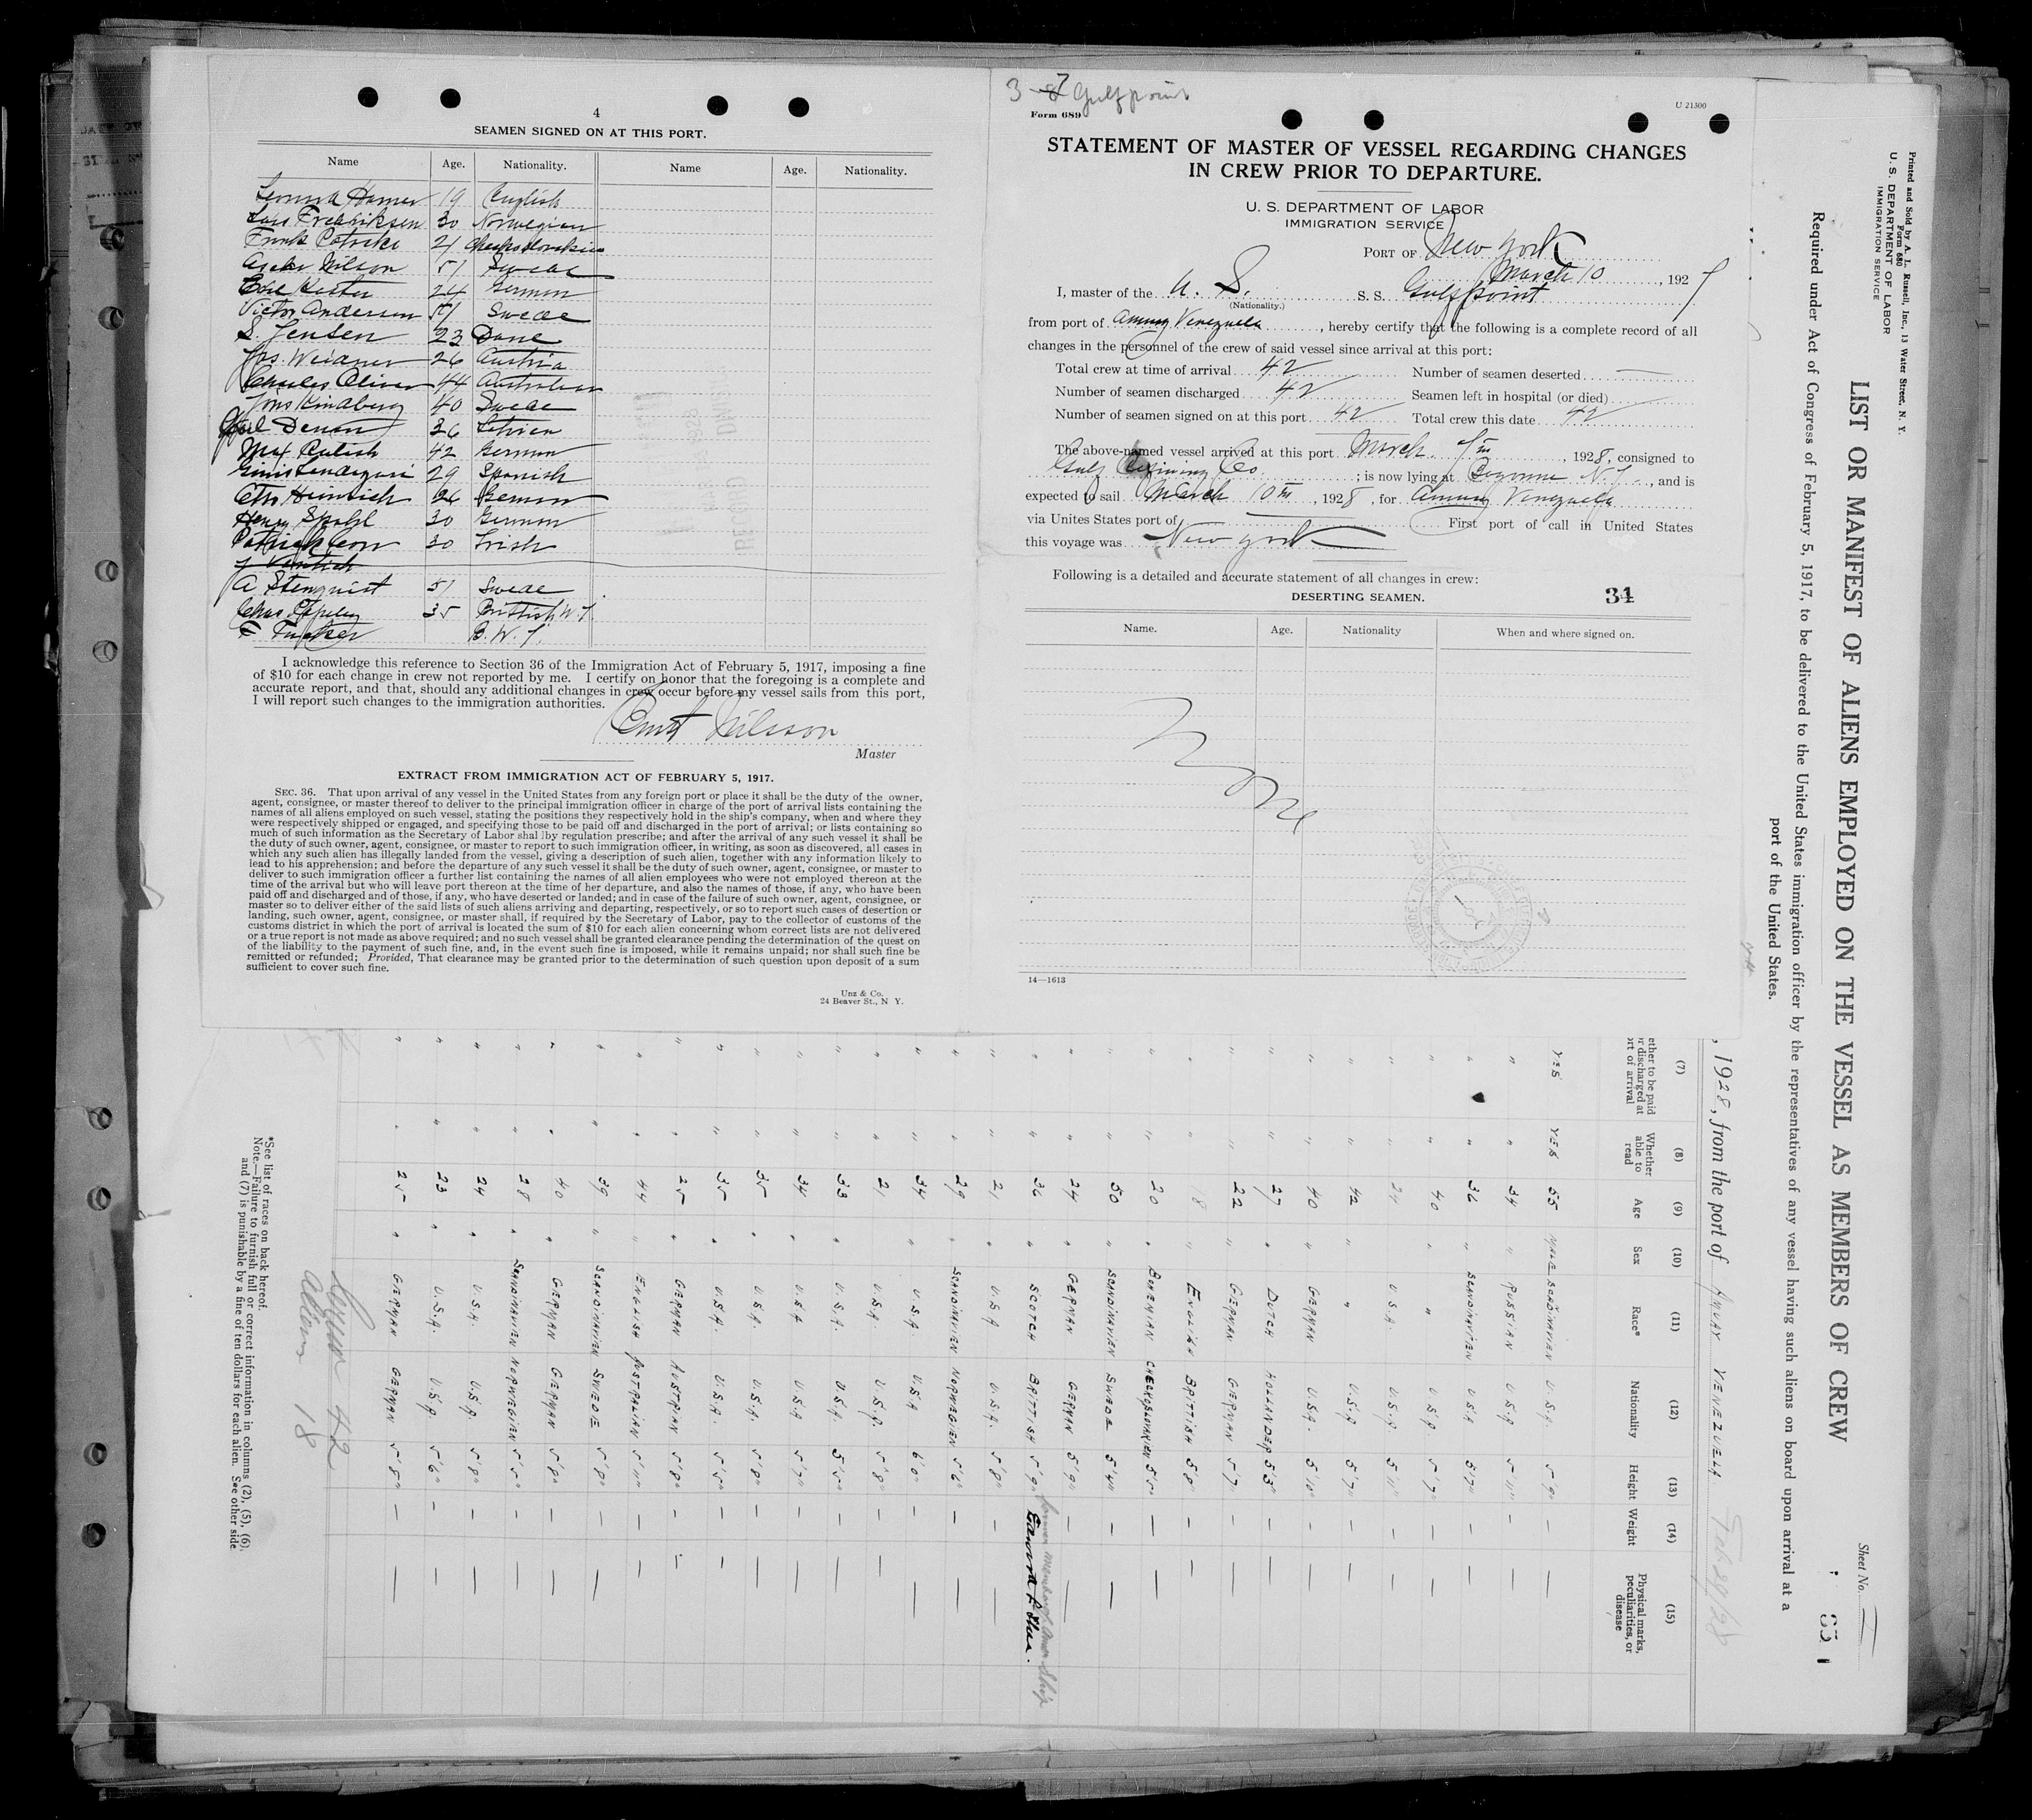 4
SEAMEN SIGNED ON AT THIS PORT.
Name Age. Nationality. Name Age. Nationality.
Homer 19 English
Lars Fredriksen 30 Norwegian
Frank 21
Nilson 51 Swede
24 German
Victor Anderson 51 Swede
S. Jensen 23 Dane
Jos. Weidner 26 Austria
Charles Oliver 44 Australian
Kindberg 40 Swede
36
Max 42 German
29 Spanish
Otto Heinrich 26 German
Henry 30 German
Patrick 30 Irish
A. Stenquist 51 Swede
Chas. 35 Brittish W. I.
F B. W. I.
I acknowledge this reference to Section 36 of the Immigration Act of February 5, 1917, imposing a fine
of $10 for each change in crew not reported by me. I certify on honor that the foregoing is a complete and
accurate report, and that, should any additional changes in crew occur before my vessel sails from this port,
I will report such changes to the immigration authorities.
Nilsson
Master
EXTRACT FROM IMMIGRATION ACT OF FEBRUARY 5, 1917.
SEC. 36. That upon arrival of any vessel in the United States from any foreign port or place it shall be the duty of the owner,
agent, consignee, or master thereof to deliver to the principal immigration officer in charge of the port of arrival lists containing the
names of all aliens employed on such vessel, stating the positions they respectively hold in the ship's company, when and where they
were respectively shipped or engaged, and specifying those to be paid off and discharged in the port of arrival; or lists containing so
much of such information as the Secretary of Labor shal lby regulation prescribe; and after the arrival of any such vessel it shall be
the duty of such owner, agent, consignee, or master to report to such immigration officer, in writing, as soon as discovered, all cases in
which any such alien has illegally landed from the vessel, giving a description of such alien, together with any information likely to
lead to his apprehension; and before the departure of any such vessel it shall be the duty of such owner, agent, consignee, or master to
deliver to such immigration officer a further list containing the names of all alien employees who were not employed thereon at the
time of the arrival but who will leave port thereon at the time of her departure, and also the names of those, if any, who have been
paid off and discharged and of those, if any, who have deserted or landed; and in case of the failure of such owner, agent, consignee, or
master so to deliver either of the said lists of such aliens arriving and departing, respectively, or so to report such cases of desertion or
landing, such owner, agent, consignee, or master shall, if required by the Secretary of Labor, pay to the collector of customs of the
customs district in which the port of arrival is located the sum of $10 for each alien concerning whom correct lists are not delivered
or a true report is not made as above required; and no such vessel shall be granted clearance pending the determination of the quest on
of the liability to the payment of such fine, and, in the event such fine is imposed, while it remains unpaid; nor shall such fine be
remitted or refunded; Provided, That clearance may be granted prior to the determination of such question upon deposit of a sum
sufficient to cover such fine.
Unz & Co.
24 Beaver St., N Y.
3-7 Gulfpoint
Form 689
U 21500
STATEMENT OF MASTER OF VESSEL REGARDING CHANGES
IN CREW PRIOR TO DEPARTURE.
U. S. DEPARTMENT OF LABOR
IMMIGRATION SERVICE
PORT OF New York
March 10, 192
I, master of the U. S. S. S. Gulfpoint
(Nationality.)
from port of Amuay Venezuela, hereby certify that the following is a complete record of all
changes in the personnel of the crew of said vessel since arrival at this port:
Total crew at time of arrival 42 Number of seamen deserted —
Number of seamen discharged 42 Seamen left in hospital (or died)
Number of seamen signed on at this port 42 Total crew this date 42
The above-named vessel arrived at this port March 7th, 1928, consigned to
Gulf Refining Co.; is now lying at Bayonne N. J., and is
expected to sail March 10th, 1928, for Amuay Venezuela
via Unites States port of First port of call in United States
this voyage was New York
Following is a detailed and accurate statement of all changes in crew:
DESERTING SEAMEN.
34
Name. Age. Nationality When and where signed on.
None
14—1613
Printed and Sold by A. L. Russell, Inc., 13 Water Street, N. Y.
Form 680
U. S. DEPARTMENT OF LABOR
IMMIGRATION SERVICE
LIST OR MANIFEST OF ALIENS EMPLOYED ON THE VESSEL AS MEMBERS OF CREW
Sheet No. 1
Required under Act of Congress of February 5, 1917, to be delivered to the United States immigration officer by the representatives of any vessel having such aliens on board upon arrival at a
port of the United States.
, 1928, from the port of AMUAY VENEZUELA Feb 29/28
(7) (8) (9) (10) (11) (12) (13) (14) (15)
ether to be paid
r discharged at
rt of arrival
Whether
able to
read
Age
Sex
Race*
Nationality
Height
Weight
Physical marks,
peculiarities, or
disease
YES YES 55 MALE SCANDINAVIEN U.S.A. 5'9" —
" " 34 " RUSSIAN U.S.A. 5'11" —
" " 36 " SCANDINAVIEN U.S.A. 5'7" —
" " 40 " " U.S.A. 5'7" —
" " 24 " U.S.A. U.S.A. 5'11" —
" " 42 " " U.S.A. 5'7" —
" " 40 " GERMAN U.S.A. 5'10" —
" " 27 " DUTCH HOLLANDER 5'3" —
" " 22 " GERMAN GERMAN 5'7" —
" " 18 " ENGLISH BRITTISH 5'8" —
" " 20 " BOHEMIAN CHECKOSLOVAKIEN 5'5" —
" " 50 " SCANDINAVIEN SWEDE 5'4" —
" " 24 " GERMAN GERMAN 5'9" —
" " 36 " SCOTCH BRITTISH 5'9" former member of Amer Ship
" " 21 " U.S.A. U.S.A. 5'8" —
" " 29 " SCANDINAVIEN NORWEGIEN 5'6" —
" " 34 " U.S.A. U.S.A. 6'0" —
" " 21 " U.S.A. U.S.A. 5'8" —
" " 33 " U.S.A. U.S.A. 5'5" —
" " 34 " U.S.A. U.S.A. 5'7" —
" " 35 " U.S.A. U.S.A. 5'8" —
" " 35 " U.S.A. U.S.A. 5'5" —
" " 25 " GERMAN AUSTRIAN 5'8" —
" " 44 " ENGLISH AUSTRALIAN 5'11" —
" " 39 " SCANDINAVIEN SWEDE 5'8" —
" " 40 " GERMAN GERMAN 5'8" —
" " 28 " SCANDINAVIEN NORWEGIEN 5'5" —
" " 24 " U.S.A. U.S.A. 5'8" —
" " 23 " U.S.A. U.S.A. 5'6" —
" " 25 " GERMAN GERMAN 5'8" —
Crew 42
Aliens 18
*See list of races on back hereof.
Note.—Failure to furnish full or correct information in columns (2), (5), (6).
and (7) is punishable by a fine of ten dollars for each alien. See other side